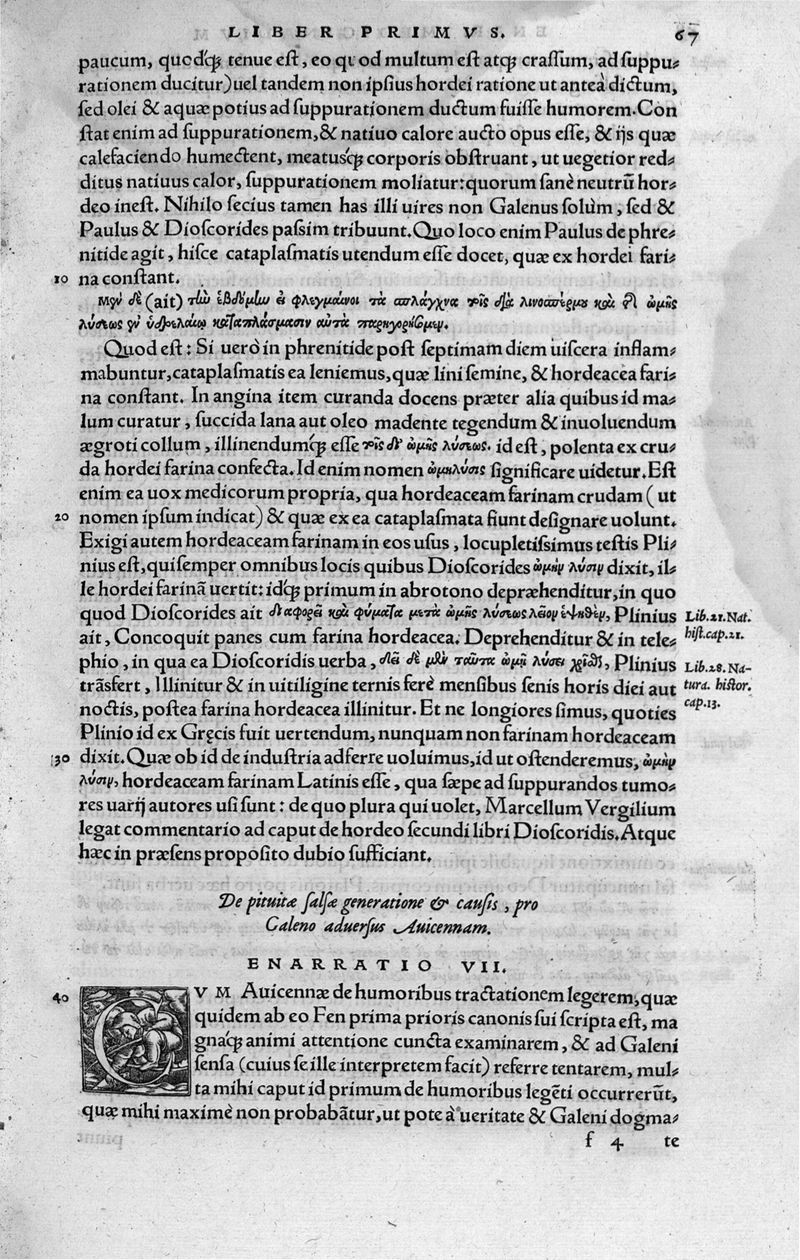 LIBER PRIMVS. 67
paucum, quodq́ue tenue eſt, eo quod multum eſt atq; craſſum, ad ſuppu-
rationem ducitur) uel tandem non ipſius hordei ratione ut anteà dictum,
ſed olei & aquæ potius ad ſuppurationem ductum fuiſſe humorem. Con
ſtat enim ad ſuppurationem, & natiuo calore aucto opus eſſe, & ijs quæ
calefaciendo humectent, meatusq́; corporis obſtruant, ut uegetior red-
ditus natiuus calor, ſuppurationem moliatur: quorum ſanè neutrũ hor-
deo ineſt. Nihilo ſecius tamen has illi uires non Galenus ſolùm, ſed &
Paulus & Dioſcorides paſsim tribuunt. Quo loco enim Paulus de phre-
nitide agit, hiſce cataplaſmatis utendum eſſe docet, quæ ex hordei fari-
10 na conſtant.
(ait) τὴν ἑβδόμην φλεγμαίνοι τὰ σπλάγχνα τοῖς διὰ λινοσπέρμου καὶ ὠμῆς
λύσεως ὑδρελαίῳ καταπλάσμασιν αὐτὰ παρηγορήσομεν.
Quod eſt: Si uerò in phrenitide poſt ſeptimam diem uiſcera inflam-
mabuntur, cataplaſmatis ea leniemus, quæ lini ſemine, & hordeacea fari-
na conſtant. In angina item curanda docens præter alia quibus id ma-
lum curatur, ſuccida lana aut oleo madente tegendum & inuoluendum
ægroti collum, illinendumq́; eſſe τοῖς δι' ὠμῆς λύσεως. id eſt, polenta ex cru-
da hordei farina confecta. Id enim nomen ὠμηλύσις ſignificare uidetur. Eſt
enim ea uox medicorum propria, qua hordeaceam farinam crudam (ut
20 nomen ipſum indicat) & quæ ex ea cataplaſmata fiunt deſignare uolunt.
Exigi autem hordeaceam farinam in eos uſus, locupletiſsimus teſtis Pli-
nius eſt, qui ſemper omnibus locis quibus Dioſcorides ὠμὴν λύσιν dixit, il-
le hordei farinã uertit: idq́; primum in abrotono depræhenditur, in quo
quod Dioſcorides ait διαφορεῖ καὶ φύματα μετὰ ὠμῆς λύσεως λεῖον ἑψηθὲν, Plinius
Lib. 21. Nat.
hiſt. cap. 21.
ait, Concoquit panes cum farina hordeacea. Deprehenditur & in tele-
phio, in qua ea Dioſcoridis uerba, δεῖ δὲ μετὰ ταῦτα ὠμῇ λύσει χρῆσθαι, Plinius
Lib. 28. Na-
tura. hiſtor.
cap. 13.
trãsfert, Illinitur & in uitiligine ternis ferè menſibus ſenis horis diei aut
noctis, poſtea farina hordeacea illinitur. Et ne longiores ſimus, quoties
Plinio id ex Gręcis fuit uertendum, nunquam non farinam hordeaceam
30 dixit. Quæ ob id de induſtria adferre uoluimus, id ut oſtenderemus, ὠμὴν
λύσιν, hordeaceam farinam Latinis eſſe, qua ſæpe ad ſuppurandos tumo-
res uarij autores uſi ſunt: de quo plura qui uolet, Marcellum Vergilium
legat commentario ad caput de hordeo ſecundi libri Dioſcoridis. Atque
hæc in præſens propoſito dubio ſufficiant.
De pituitæ ſalſæ generatione & cauſis, pro
Galeno aduerſus Auicennam.
ENARRATIO VII.
40 CVM Auicennæ de humoribus tractationem legerem, quæ
quidem ab eo Fen prima prioris canonis ſui ſcripta eſt, ma
gnaq́; animi attentione cuncta examinarem, & ad Galeni
ſenſa (cuius ſe ille interpretem facit) referre tentarem, mul-
ta mihi caput id primum de humoribus legẽti occurrerũt,
quæ mihi maximè non probabãtur, ut pote à ueritate & Galeni dogma-
f 4 te